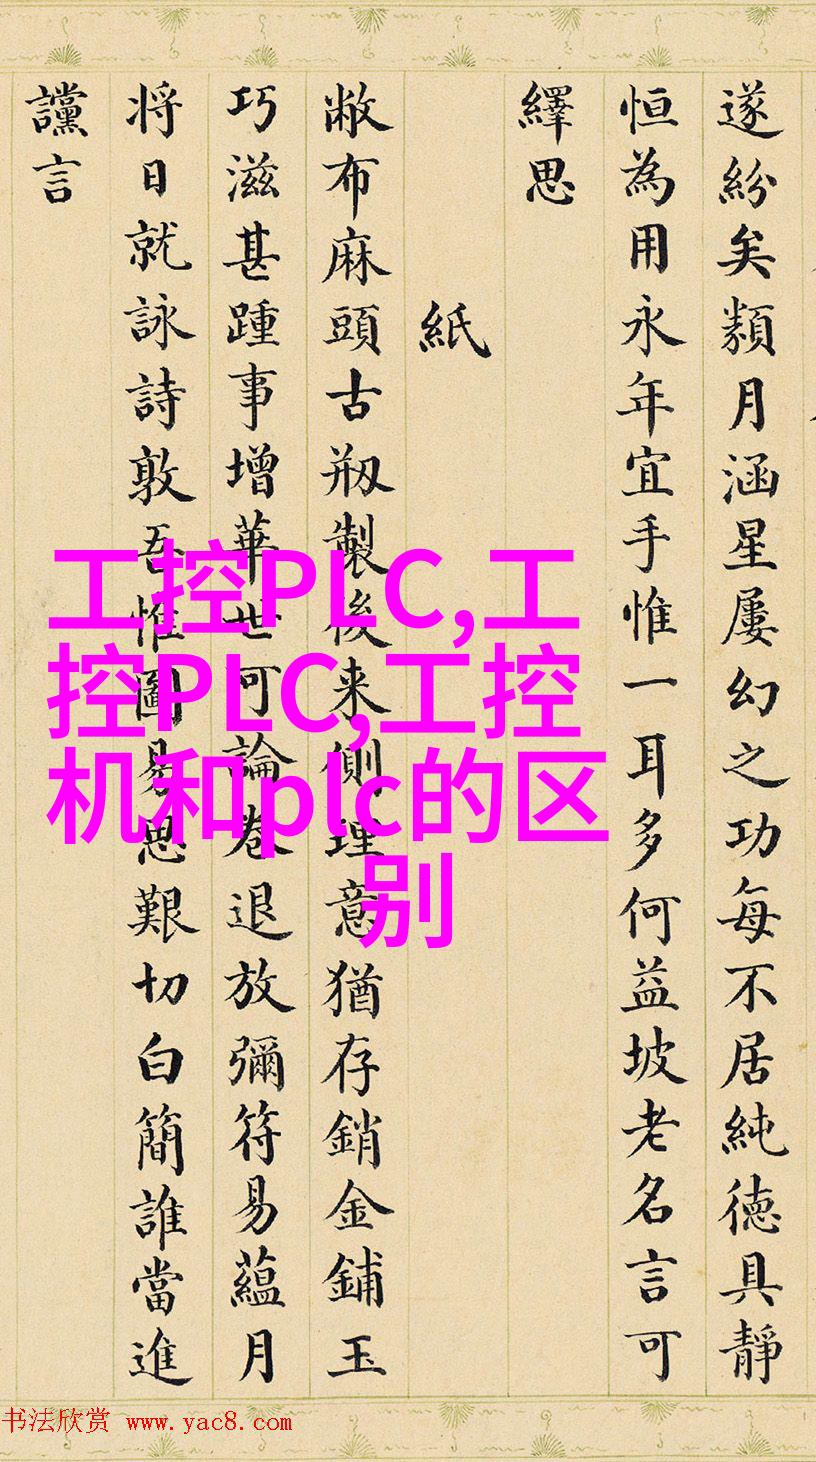 遂紛矣類月涵星屢幻之功每不居純德具靜
恒為用永年宜手惟一耳多何益坡老名言可
繹思
紙
敝布麻頭古剏製後来側理意猶存銷金鋪玉
巧滋甚踵事增華世可論卷退放彌符易蘊月
将日就詠詩敦吾惟圖易思艱切白簡誰當進
讜言
工控PLC,工
控PLC,工控
机和plc的区
别
书法欣赏 www.yac8.com